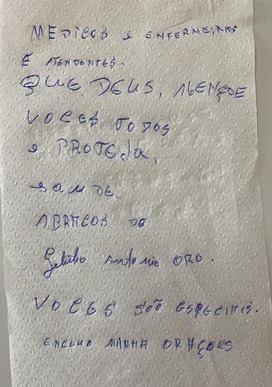 MEDICOS e ENFERMEIRAS
E ATENDENTES.
QUE DEUS, ABENÇOE
VOCES TODOS
e PROTEJA,
SAUDE.
ABRACOS DO
Antonio ORO.
VOCES SÃO ESPECIAIS.
MINHA ORAÇÕES